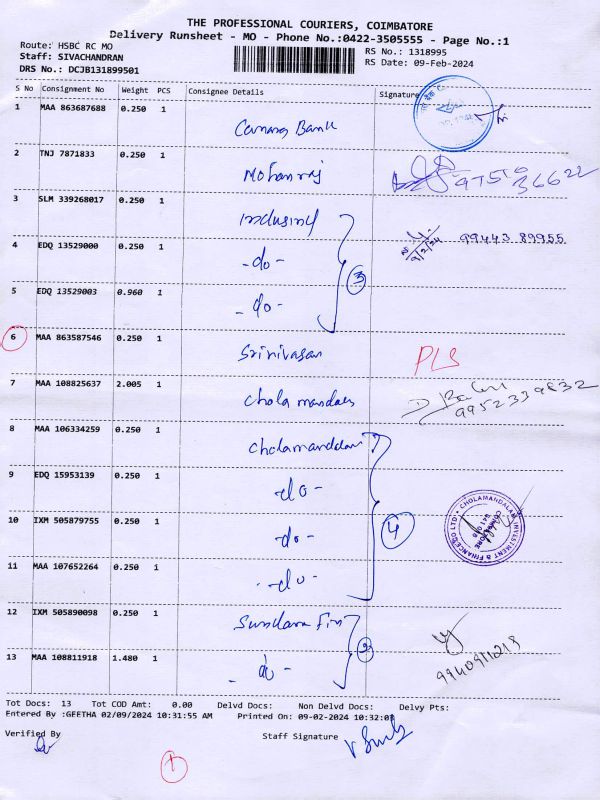 THE PROFESSIONAL COURIERS, COIMBATORE
Delivery Runsheet - MO - Phone No.:0422-3505555 - Page No.:1
Route: HSBC RC MO
RS No.: 1318995
Staff: SIVACHANDRAN
RS Date: 09-Feb-2024
DRS No.: DCJB131899501
S No Consignment No Weight PCS Consignee Details Signature
1 MAA 863687688 0.250 1
Canara Bank
2 TNJ 7871833 0.250 1
Mohanraj 97510 36622
3 SLM 339268017 0.250 1
Indusind
9/2/24 99443 89955
4 EDQ 13529000 0.250 1
-do-
3
5 EDQ 13529003 0.960 1
-do-
6 MAA 863587546 0.250 1
Srinivasan PLS
7 MAA 108825637 2.005 1
Chola mandalam
8 MAA 106334259 0.250 1
Cholamandalam
9 EDQ 15953139 0.250 1
-do-
CHOLAMANDALAM INVESTMENT & FINANCE CO LTD
COIMBATORE
10 IXM 505879755 0.250 1
-do-
4
11 MAA 107652264 0.250 1
-do-
12 IXM 505890098 0.250 1
Sundara Fin
2
13 MAA 108811918 1.480 1
-do-
Tot Docs: 13 Tot COD Amt: 0.00 Delvd Docs: Non Delvd Docs: Delvy Pts:
Entered By :GEETHA 02/09/2024 10:31:55 AM Printed On: 09-02-2024 10:32:08
Verified By Staff Signature
1